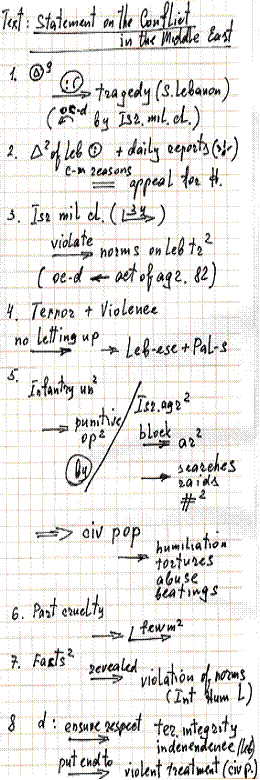 Text: Statement on the Conflict
in the Middle East
1. Δ⁹
tragedy (S. Lebanon)
(oc-d by Isr. mil. cl.)
2. Δ² of Leb + daily reports
c-m reasons
appeal for H.
3. Isr mil cl. (3y)
violate norms on Leb t²
(oc-d ← act of agr. 82)
4. Terror + Violence
no letting up → Leb-ese + Pal-s
5.
Infantry un² Isr. agr²
→ punitive block → ar²
op²
by → searches
raids
#²
⇒ civ pop
→ humiliation
tortures
abuse
beatings
6. Part cruelty
→ few m²
7. Facts²
revealed violation of norms
(Int Hum L)
8 d: ensure respect ter. integrity
indenendence (Leb)
put end to violent treatment (civ p.)